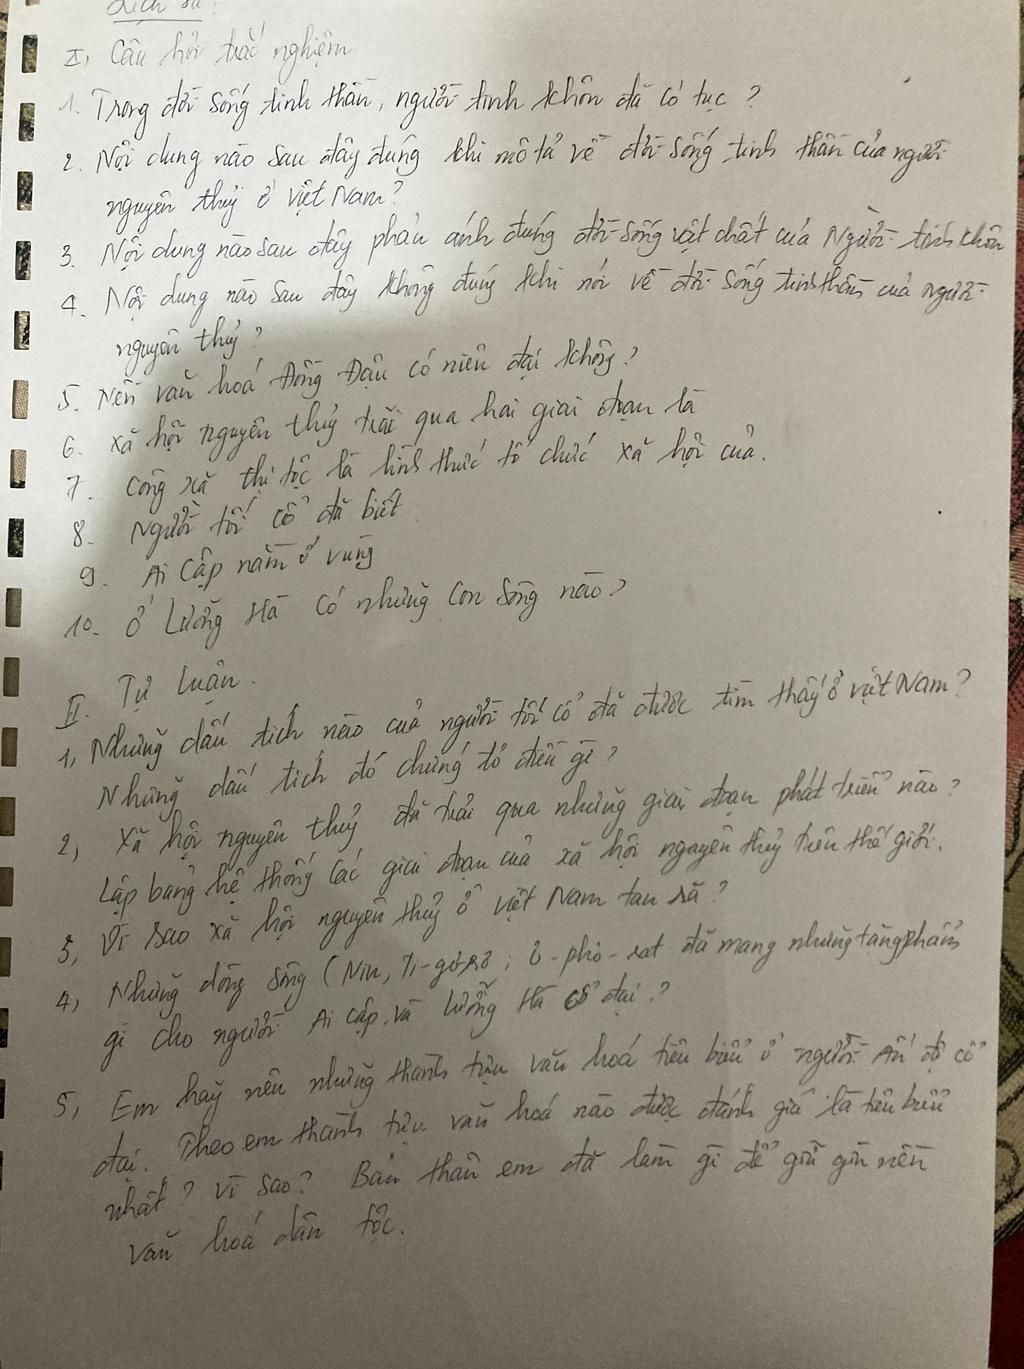 Lịch sử:
I, Câu hỏi trắc nghiệm
1. Trong đời sống tinh thần, người tinh khôn đã có tục ?
2. Nội dung nào sau đây đúng khi mô tả về đời sống tinh thần của người
nguyên thuỷ ở Việt Nam?
3. Nội dung nào sau đây phản ánh đúng đời sống vật chất của Người tinh khôn
4. Nội dung nào sau đây không đúng khi nói về đời sống tinh thần của người
nguyên thuỷ?
5. Nền văn hoá Đồng Đậu có niên đại khoảng?
6. xã hội nguyên thuỷ trải qua hai giai đoạn là
7. Công xã thị tộc là hình thức tổ chức xã hội của.
8. Người tối cổ đã biết
9. Ai Cập nằm ở vùng
10. ở Lưỡng Hà có những con sông nào?
II. Tự luận.
1, Những dấu tích nào của người tối cổ đã được tìm thấy ở việt Nam?
Những dấu tích đó chứng tỏ điều gì?
2, Xã hội nguyên thuỷ đã trải qua những giai đoạn phát triển nào?
Lập bảng hệ thống các giai đoạn của xã hội nguyên thuỷ trên thế giới.
3, Vì sao xã hội nguyên thuỷ ở việt Nam tan rã?
4, Những dòng sông (Nin, Ti-gơ-rơ; Ơ-phơ-rat đã mang những tặng phẩm
gì cho người Ai Cập và Lưỡng Hà cổ đại?
5, Em hãy nêu những thành tựu văn hoá tiêu biểu ở người Ấn độ cổ
đại. Theo em thành tựu văn hoá nào được đánh giá là tiêu biểu
nhất? vì sao? Bản thân em đã làm gì để giữ gìn nền
văn hoá dân tộc.